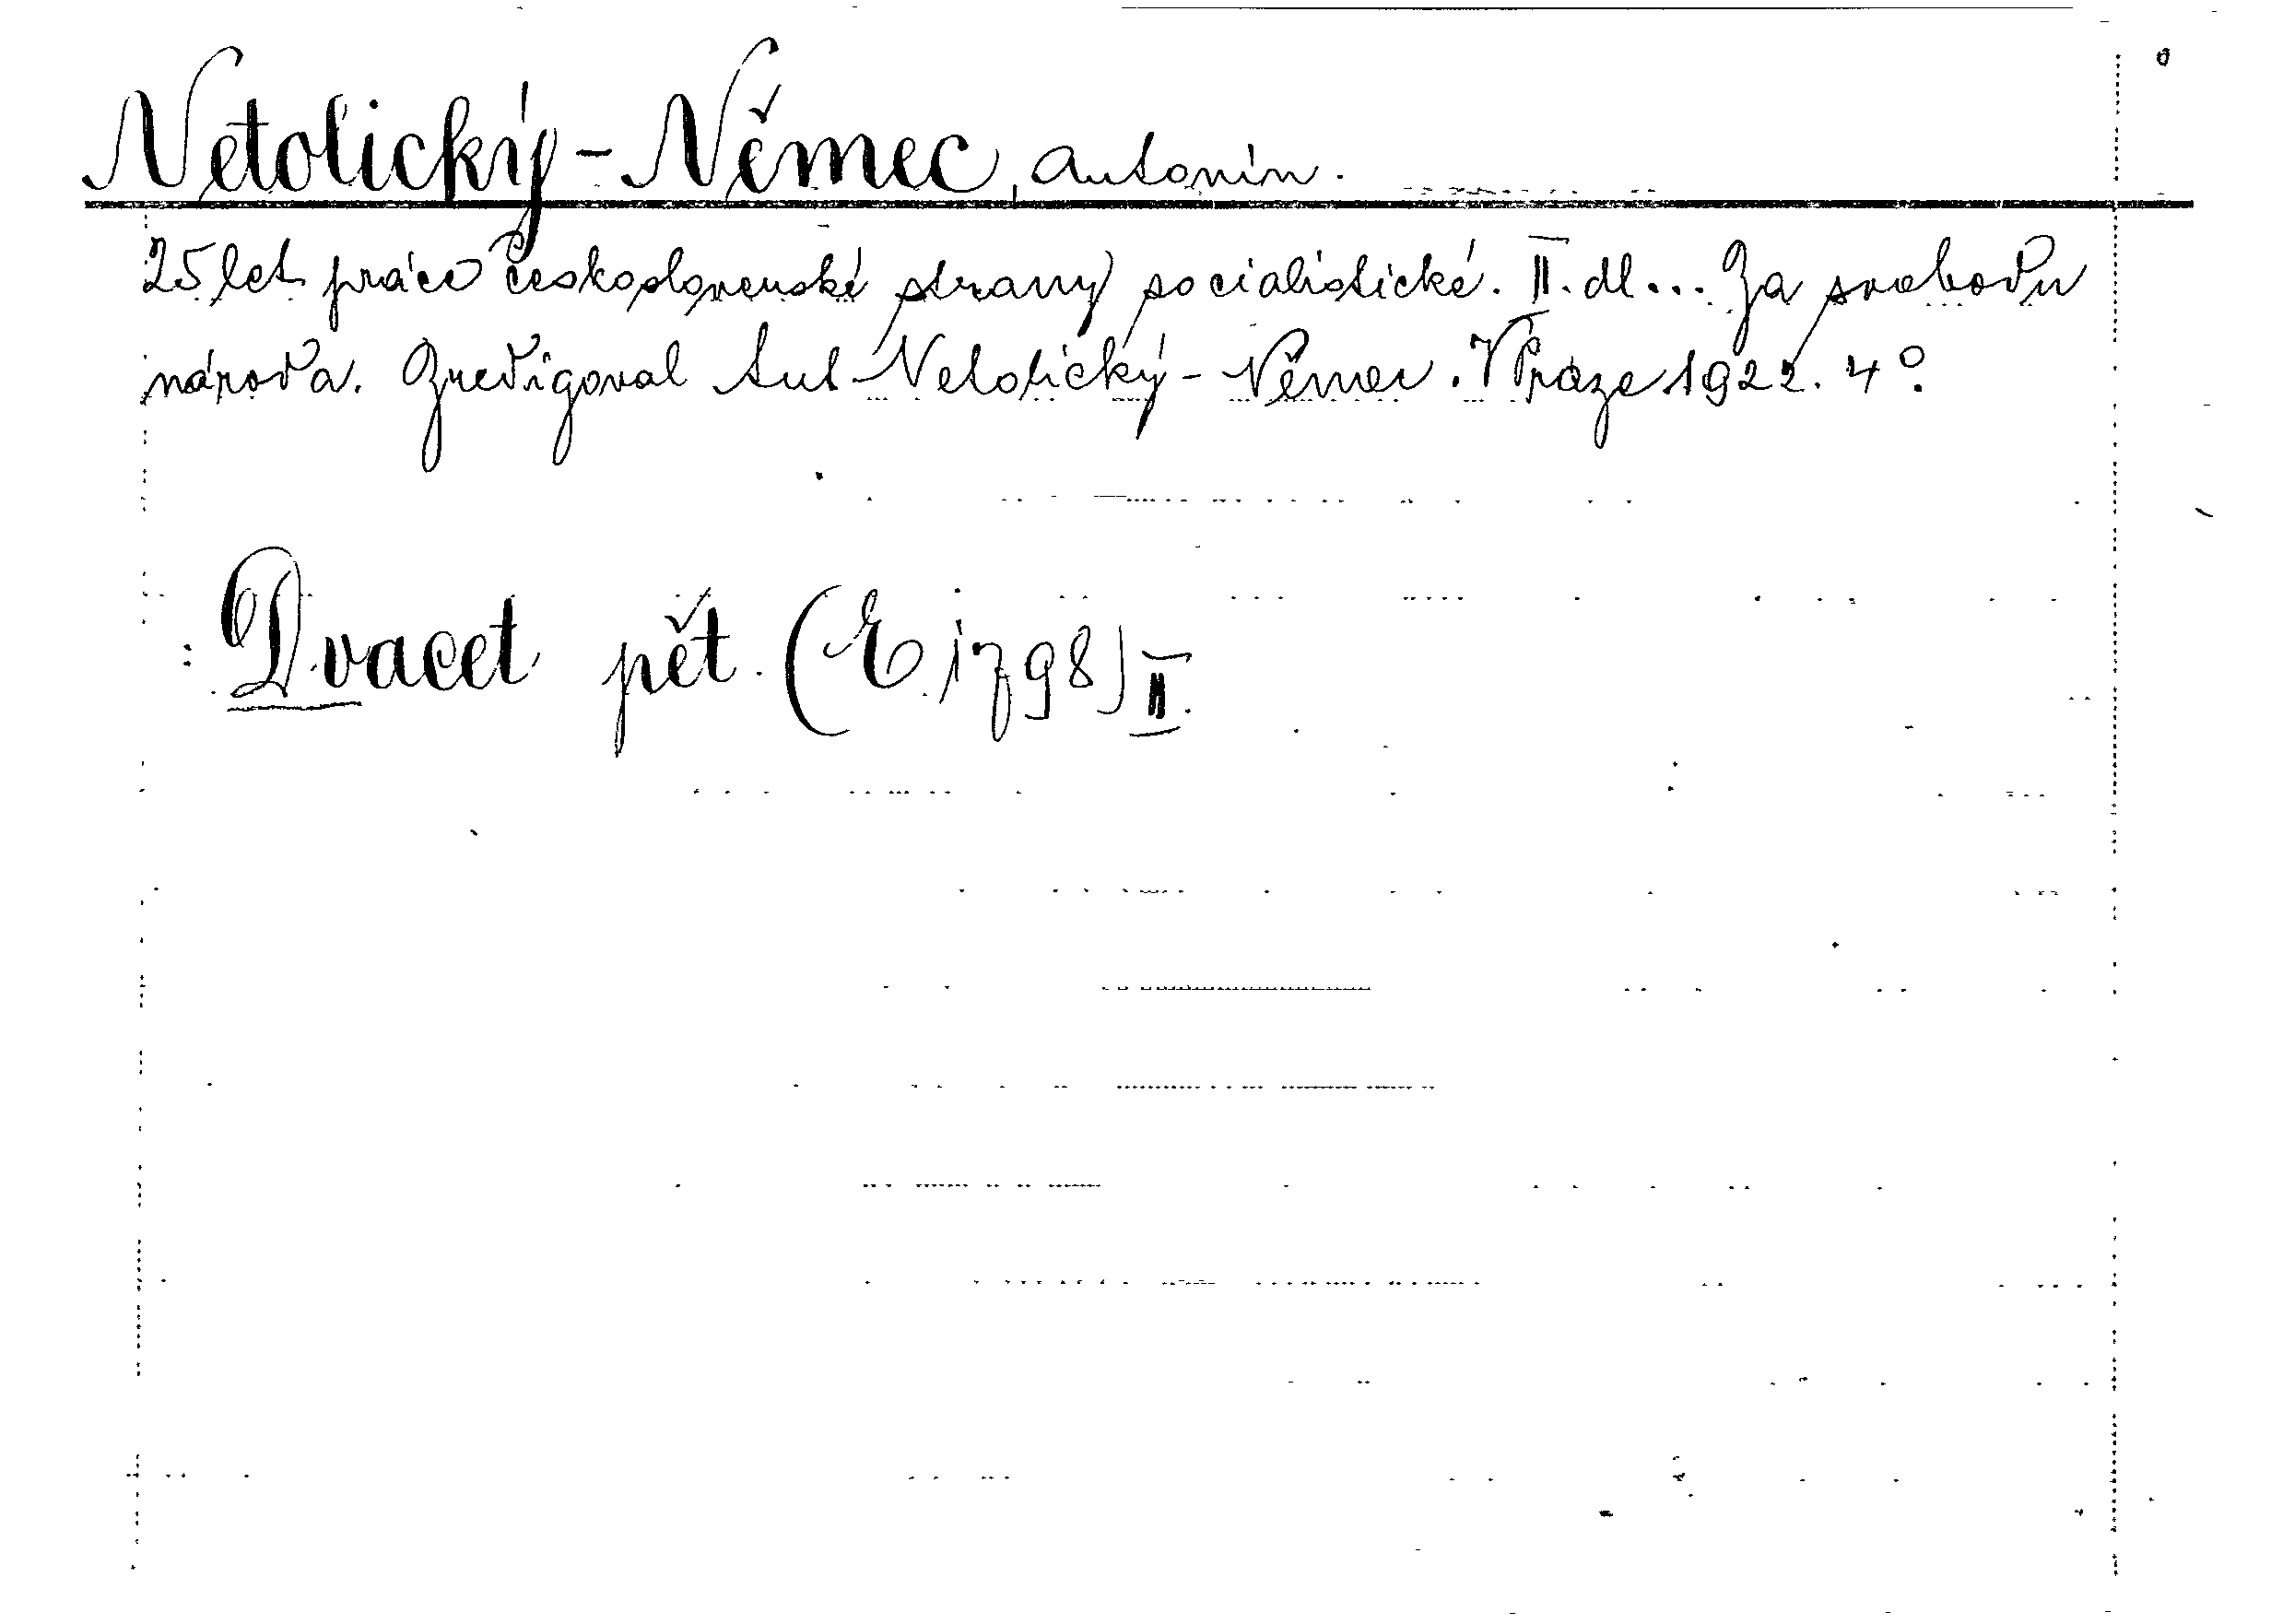 Netolický-Němec, Antonín.
25 let práce československé strany socialistické. II. dl... Za svobodu
národa. Zredigoval Ant. Netolický-Němec. V Praze 1922. 4°.
: Dvacet pět. (E 1798) II.